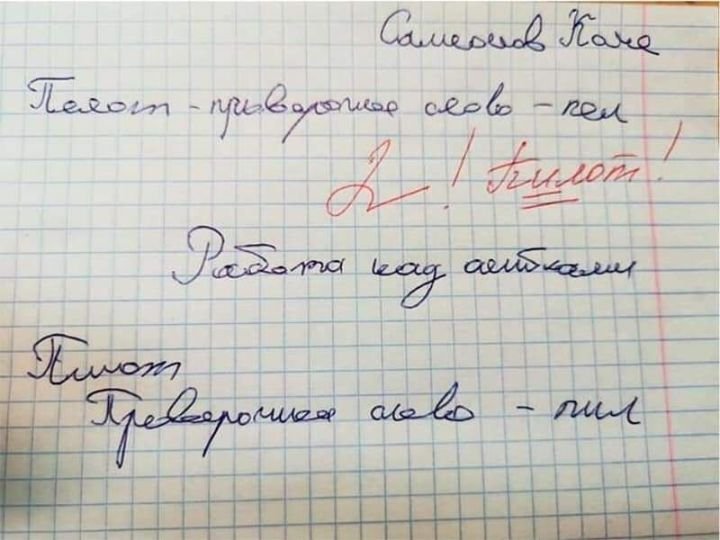 Самсонов Коля
Пелот -приверочнае слово - пел
2! пилот!
Работа над ашибками
Пилот
Преверочнае слово - пил